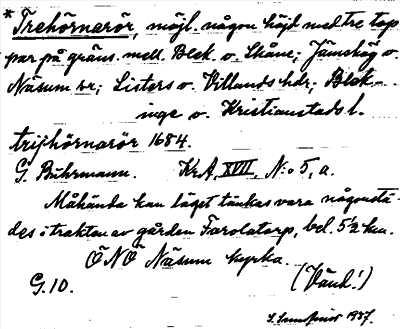 * Trehörnarör, möjl. någon höjd med tre top
par på gräns. mell. Blek. o. Skåne; Jämshög o.
Näsum sr; Listers o. Villands hdr; Blek-
inge o. Kristianstads l.
trijhörnarör 1684.
G. Buhrmann. KrA, XVII, N:o 5, a.
Måhända kan läget tänkas vara någonstä-
des i trakten av gården Farolatorp, bel. 5½ km.
ÖNÖ Näsum kyrka.
G. 10. (Vänd!)
1937.